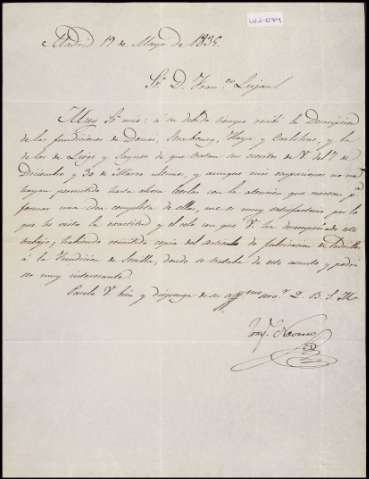 Madrid 19 de Mayo de 1835.
Sr. D. Fran.co Luján
Muy Sr. mio: á su debido tiempo recibí la Descripcion
de las fundiciones de Douai, Strasbourg, Haya y y la
de las de Lieja y de que tratan sus escritos de 8 del p.o
Diciembre y 30 de Marzo último, y aunque mis ocupaciones no me
hayan permitido hasta ahora leerlas con la atencion que merecen p.a
formar una idea completa de ellas, me es muy satisfactorio por lo
que he visto la exactitud y el celo con que V. ha desempeñado este
trabajo; habiendo remitido copia del artículo de fabricacion de
á la Fundicion de Sevilla, donde se trataba de este asunto y podrá
ser muy interesante.
Páselo V. bien y disponga de su Q. B. S. M.